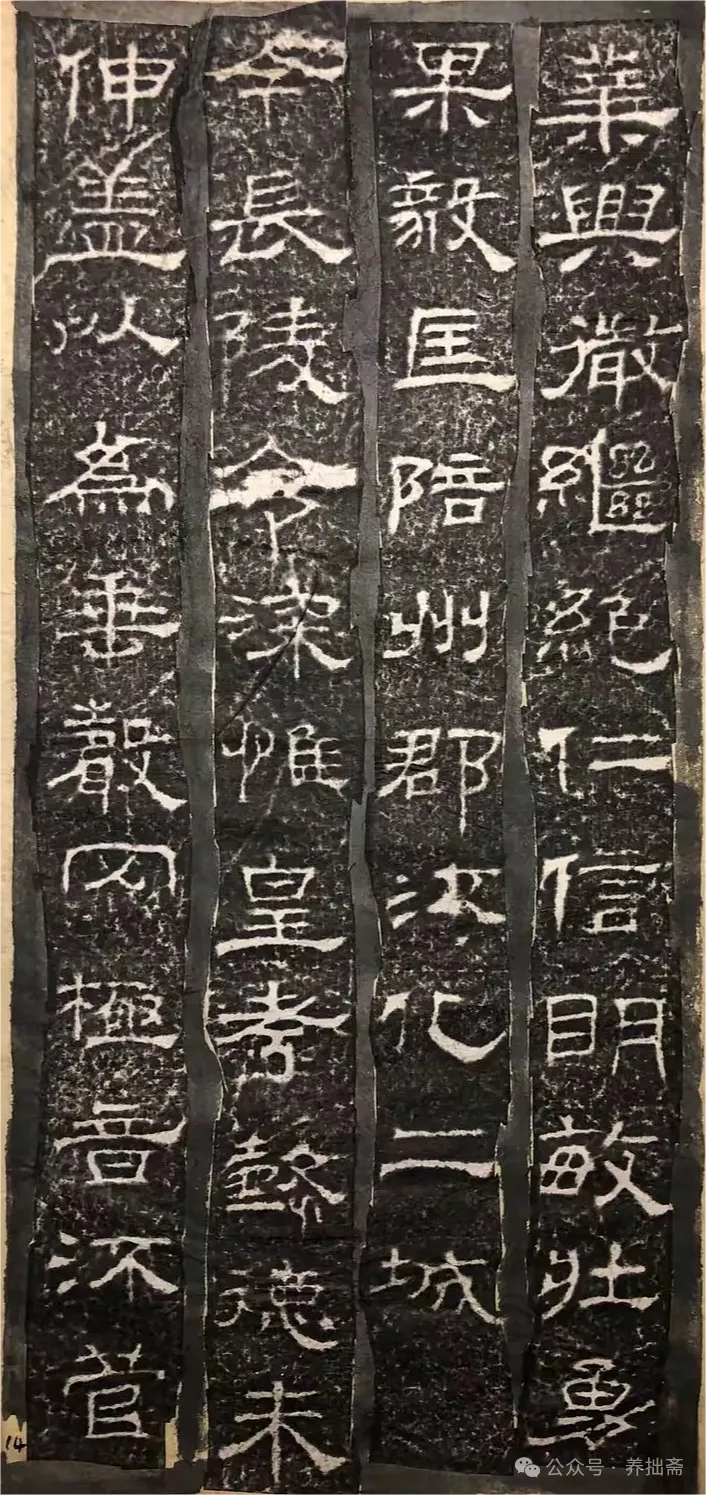 業興微繼絕仁信明敏壯勇
果毅匡陪州郡流化二城
今長陵令深惟皇考懿德未
伸蓋以為垂聲罔極音流管
14
公众号·养拙斋